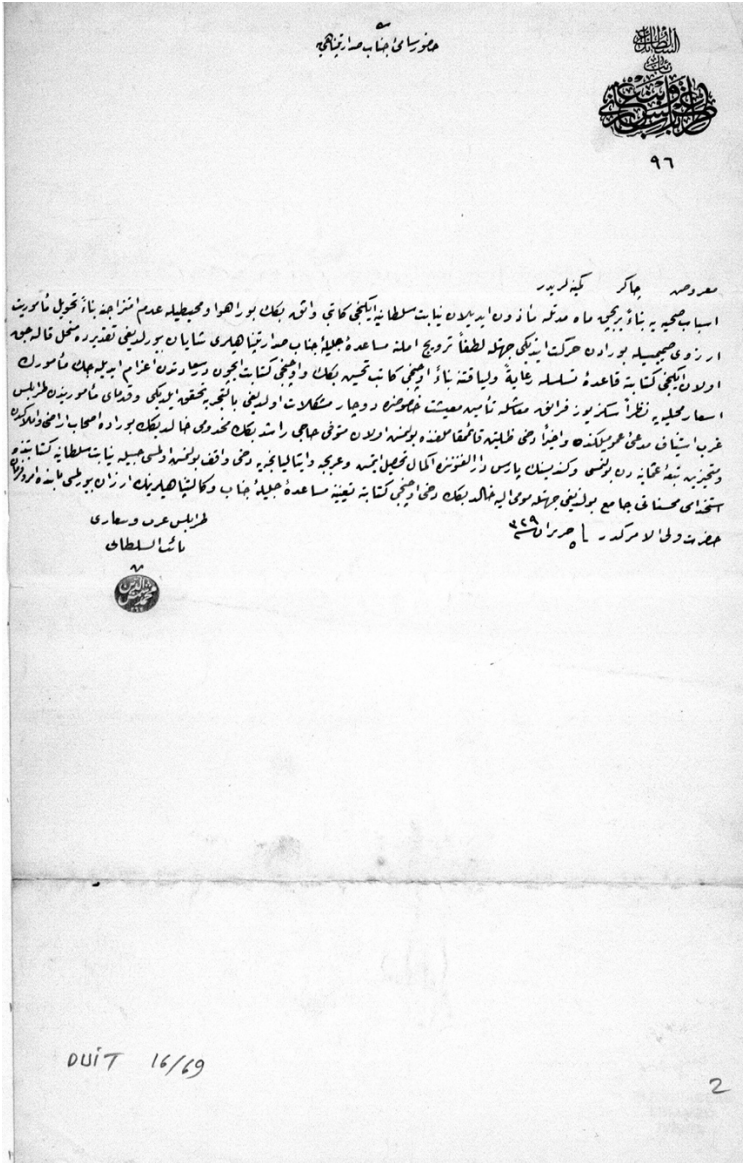 حضور سامئ جناب صدارتپناهی
نيابت
٩٦
معروض چاکر کمینه‌لریدر
اسباب صحیه‌یه بناءً بر بچق ماه مدتله مأذون ایدیلان نیابت سلطانیه ایکنجی کاتبی واثق بکک بورا هوا و محیطیله عدم امتزاجنه بناءً تحویل مأموریت
ارزوی صمیمیسیله بورادن حرکت ایتدیکی جهتله لطفاً ترویج املنه مساعدهٔ جلیلهٔ جناب صدارتپناهیلری شایان بیورلدیغی تقدیرده منحل قاله‌جق
اولان ایکنجی کتابته قاعدهٔ تسلسله رعایةً و لیاقتنه بناءً اوچنجی کاتب تحسین بکک و اوچنجی کتابت ایچون درسعادتدن اعزام ایدیله‌جک مأمورک
اسعار محلیه‌یه نظراً سکز یوز غروش معاشله تأمین معیشت خصوصنده دوچار مشکلات اولدیغی بالتجربه تحقق ایلدیکی و قدمای مأموریندن طرابلس
غرب استیناف مدعئ عمومیلکنده و اخیراً دخی قائمقاملغنده بولنمش اولان متوفی حاجی راشد بکک مخدومی خالد بکک بوراده اصحاب اراضی و املاکدن
و متحیزین تبعهٔ عثمانیه‌دن بولنمسی و کندیسنک پارس دارالفنوننده اکمال تحصیل ایتمش و عربجه و ایتالیانجه‌یه دخی واقف بولنمش اولمسی حسبیله نیابت سلطانیه کتابتنده
استخدامی محسناتی جامع بولندیغی جهتله مومی الیه خالد بکک دخی اوچنجی کتابته تعییننه مساعدهٔ جلیلهٔ جناب وکالتپناهیلرینک ارزان بیورلمسی بابنده امر و فرمان
حضرت ولی الامرکدر حزیران ٣٢٩
طرابلس غرب و بنغازی
نائب السلطانی
محمد شمس الدین
DUİT 16/69
2